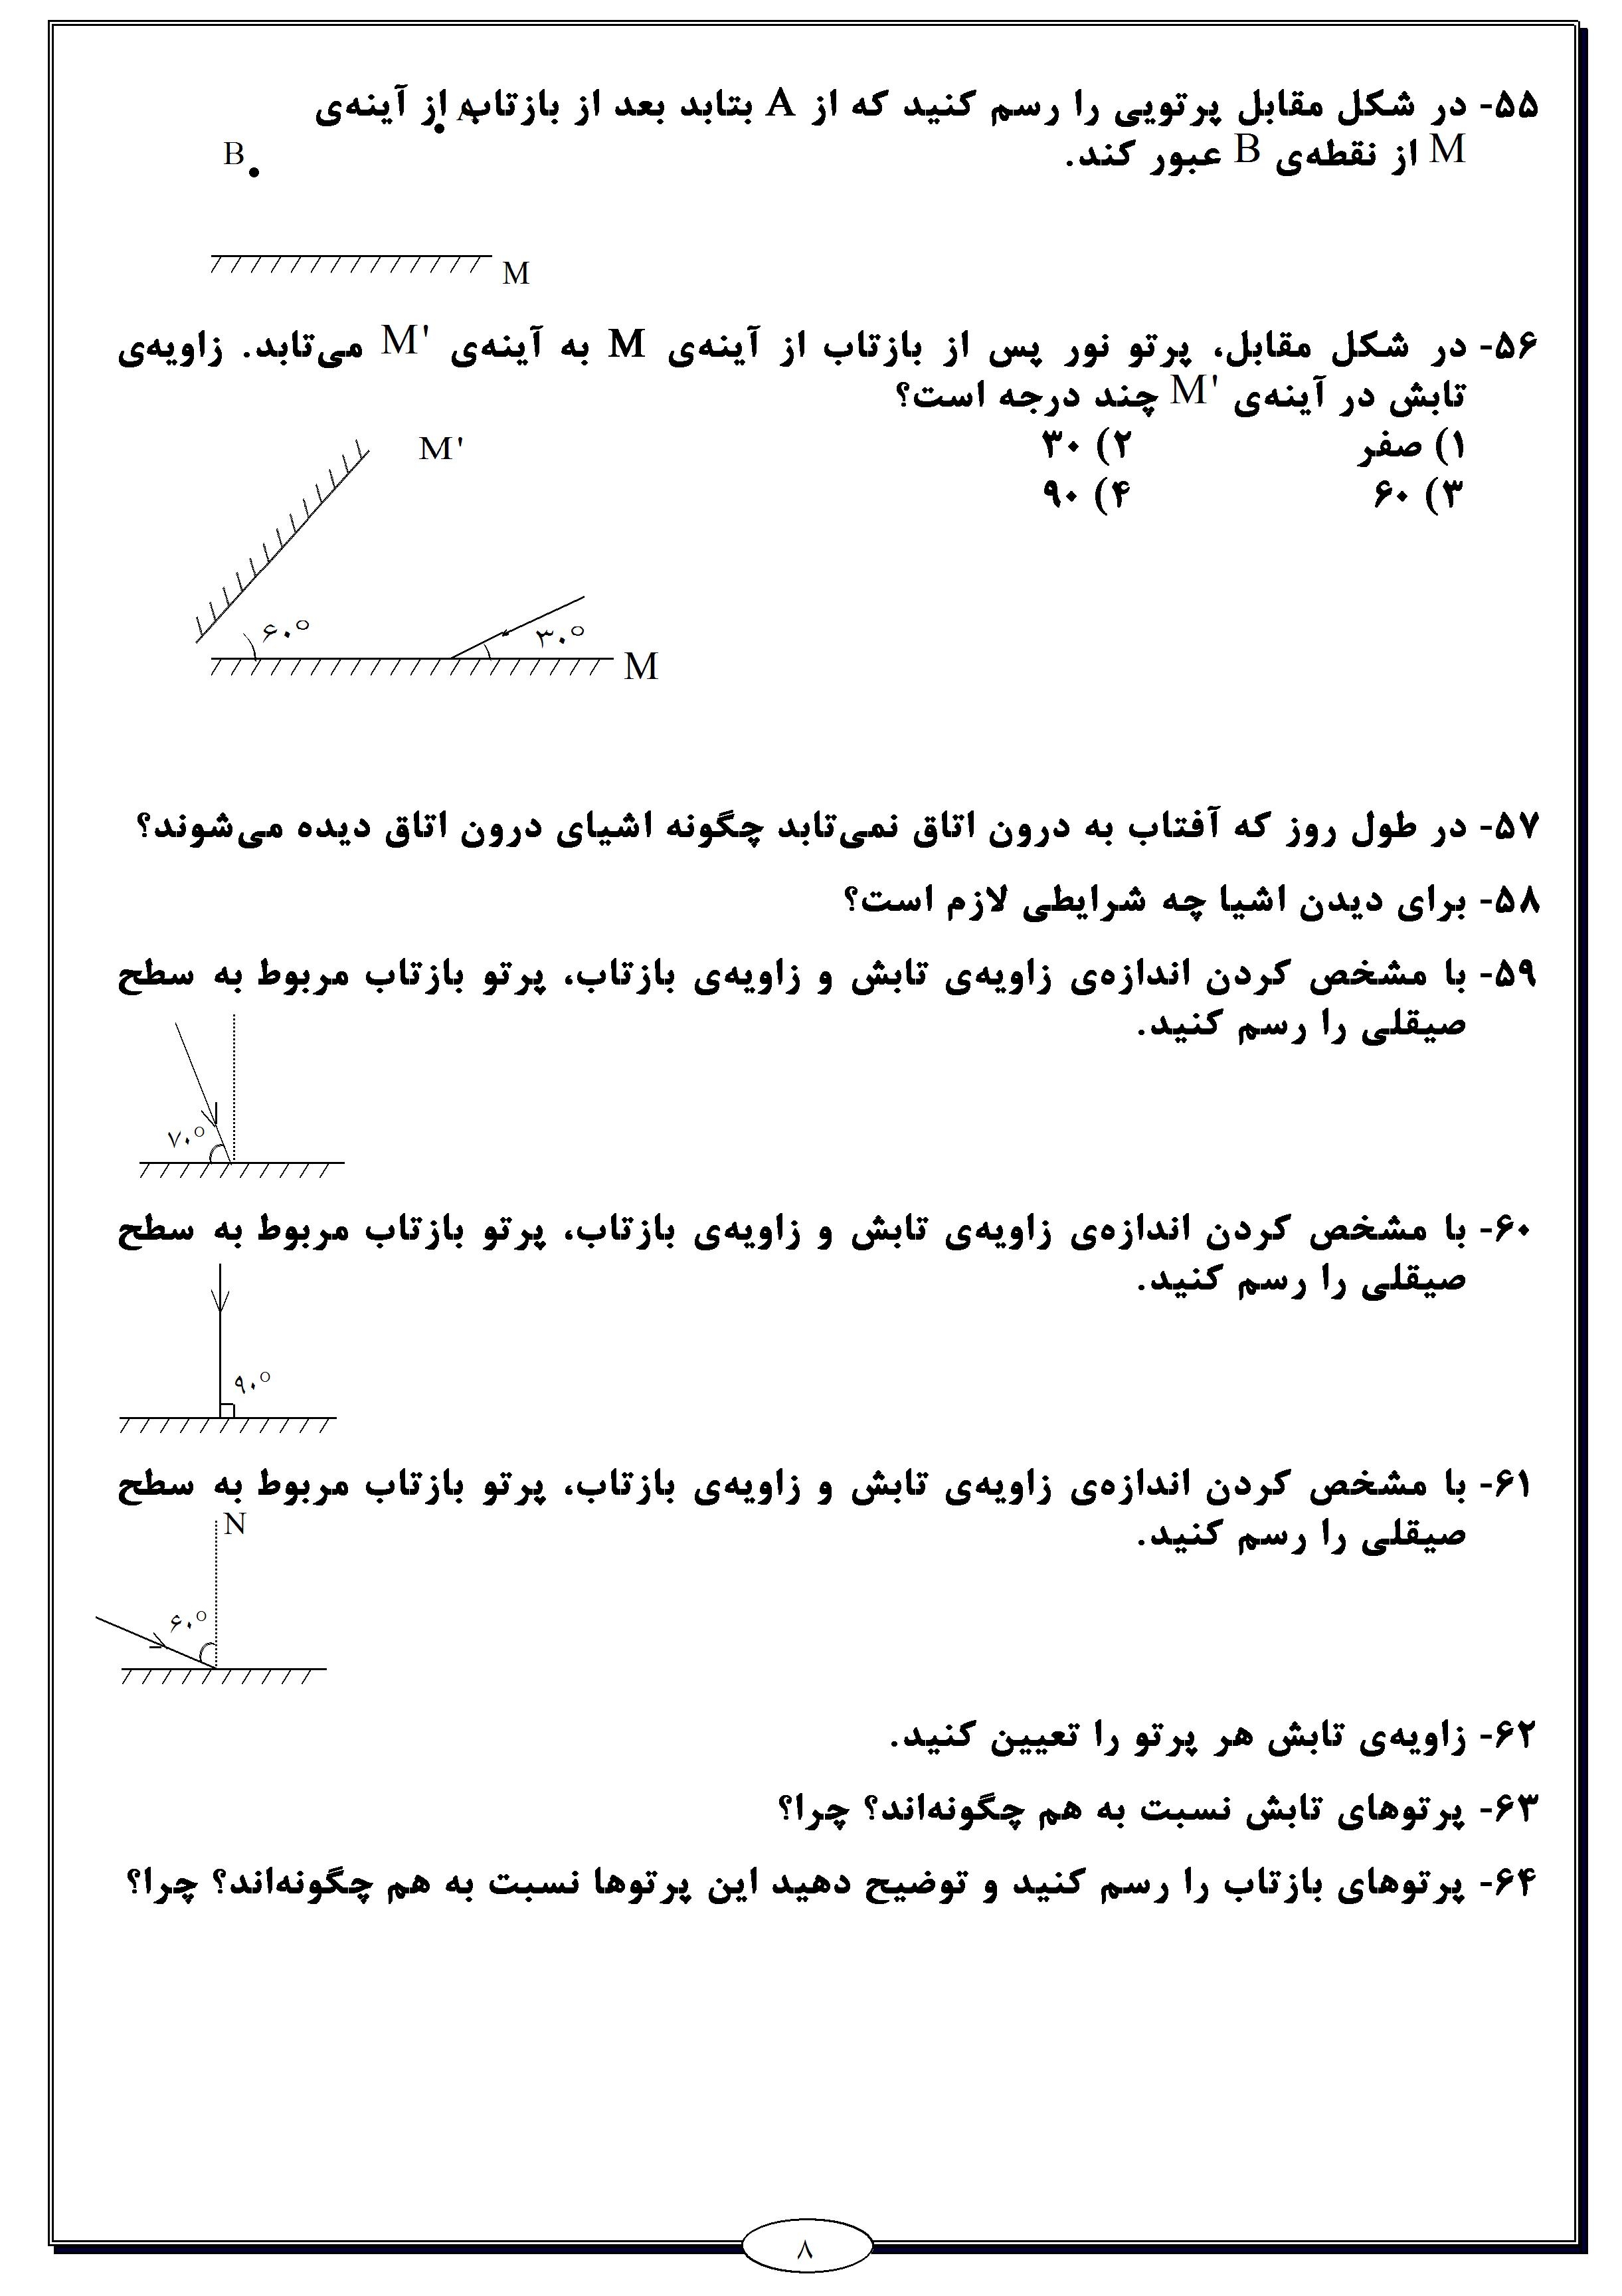 ۵۵- در شکل مقابل پرتویی را رسم کنید که از A بتابد بعد از بازتاب از آینه‌ی
M از نقطه‌ی B عبور کند.
A
B
M
۵۶- در شکل مقابل، پرتو نور پس از بازتاب از آینه‌ی M به آینه‌ی M' می‌تابد. زاویه‌ی
تابش در آینه‌ی M' چند درجه است؟
۱) صفر ۲) ۳۰
۳) ۶۰ ۴) ۹۰
M'
۶۰° ۳۰°
M
۵۷- در طول روز که آفتاب به درون اتاق نمی‌تابد چگونه اشیای درون اتاق دیده می‌شوند؟
۵۸- برای دیدن اشیا چه شرایطی لازم است؟
۵۹- با مشخص کردن اندازه‌ی زاویه‌ی تابش و زاویه‌ی بازتاب، پرتو بازتاب مربوط به سطح
صیقلی را رسم کنید.
۷۰°
۶۰- با مشخص کردن اندازه‌ی زاویه‌ی تابش و زاویه‌ی بازتاب، پرتو بازتاب مربوط به سطح
صیقلی را رسم کنید.
۹۰°
۶۱- با مشخص کردن اندازه‌ی زاویه‌ی تابش و زاویه‌ی بازتاب، پرتو بازتاب مربوط به سطح
صیقلی را رسم کنید.
N
۶۰°
۶۲- زاویه‌ی تابش هر پرتو را تعیین کنید.
۶۳- پرتوهای تابش نسبت به هم چگونه‌اند؟ چرا؟
۶۴- پرتوهای بازتاب را رسم کنید و توضیح دهید این پرتوها نسبت به هم چگونه‌اند؟ چرا؟
۸